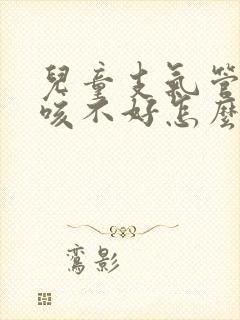 兒童支氣管
咳不好怎麼
鸞影